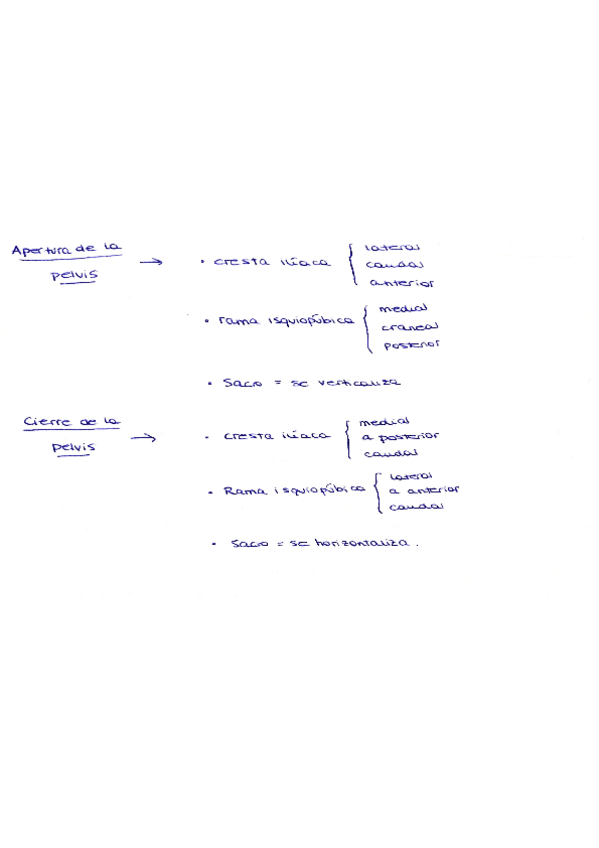 Apertura de la pelvis → • cresta ilíaca { lateral
caudal
anterior
• rama isquiopúbica { medial
craneal
posterior
• Sacro = se verticaliza
Cierre de la pelvis → • cresta ilíaca { medial
a posterior
caudal
• Rama isquiopúbica { lateral
a anterior
caudal
• Sacro = se horizontaliza.